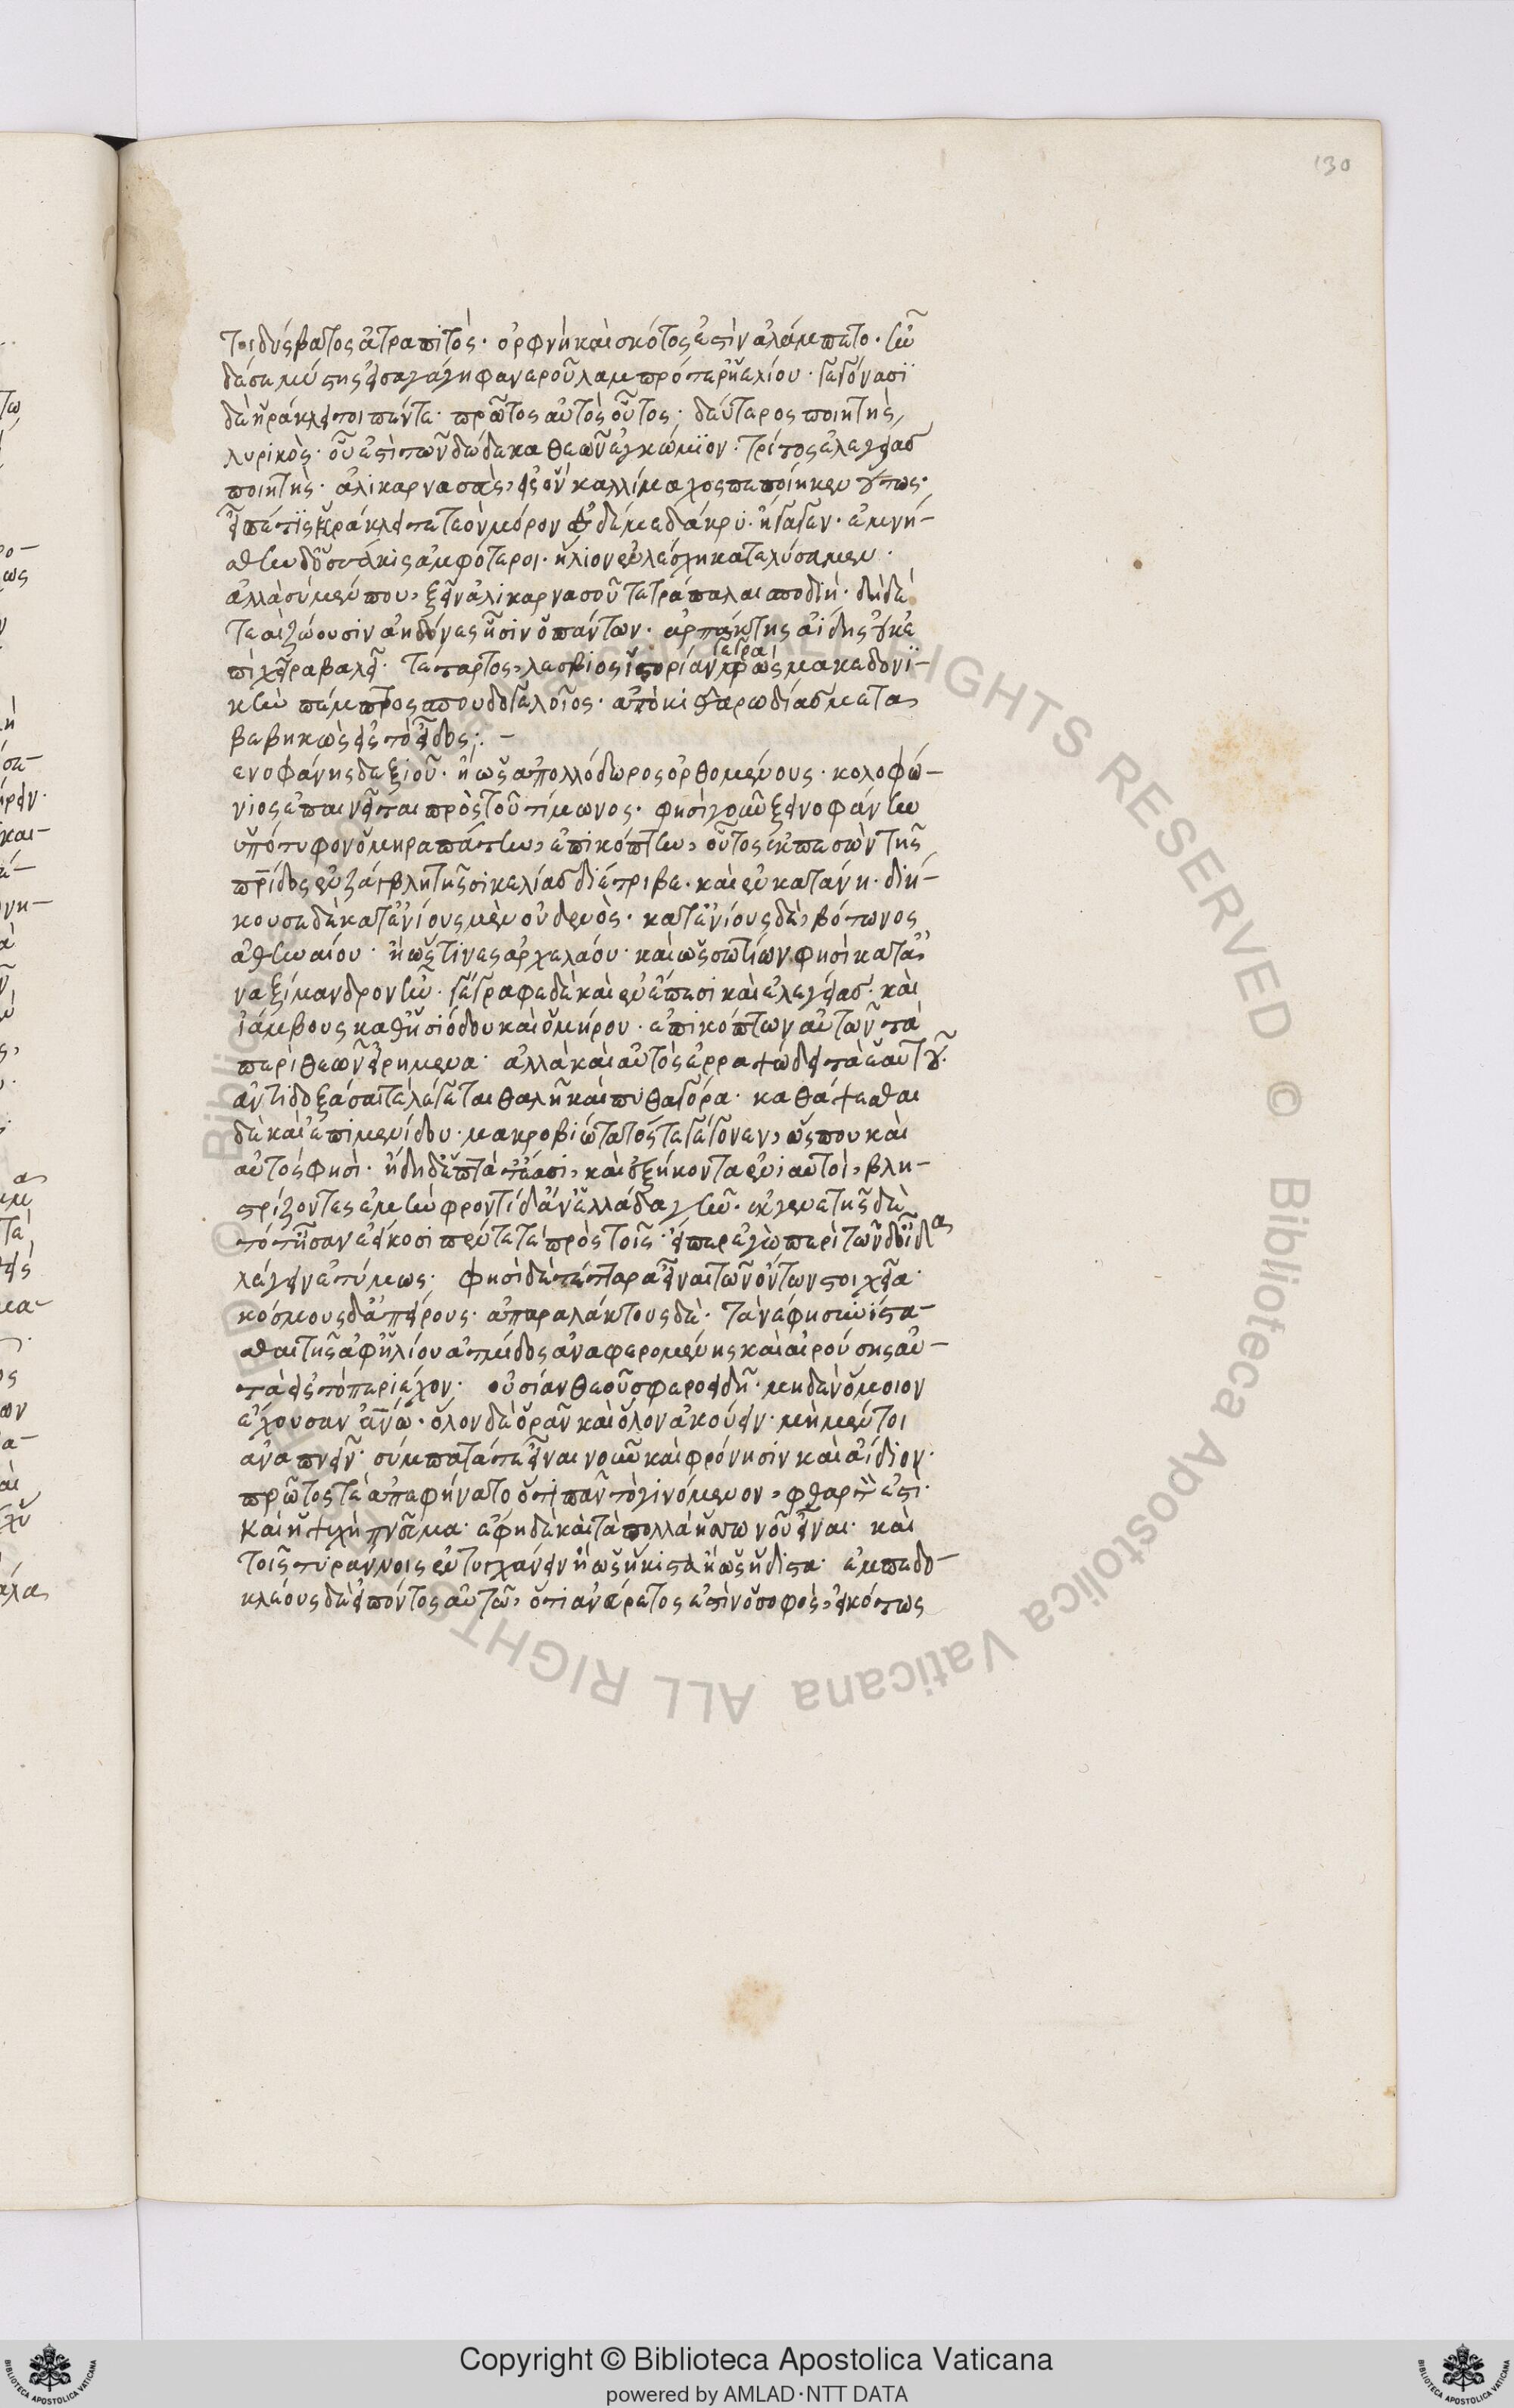 130
τοι δύσβατος ἀτραπιτός· ὀρφνὴ καὶ σκότος ἐστὶν ἀλάμπετο· ἢν
δέ σε μύστης εἰσαγάγῃ φανεροῦ λαμπρότερ' ἠελίου· γεγόνασι
δὲ ἡράκλειτοι πέντε· πρῶτος αὐτὸς οὗτος· δεύτερος ποιητὴς
λυρικός· οὗ ἐστὶ τῶν δώδεκα θεῶν ἐγκώμιον· τρίτος ἐλεγείας
ποιητὴς· ἁλικαρνασεύς, εἰς ὃν καλλίμαχος πεποίηκεν οὕτως·
εἶπέ τις ἡράκλειτε τεὸν μόρον ἐς δέ με δάκρυ· ἤγαγεν· ἐμνή-
σθην δ' ὁσσάκις ἀμφότεροι· ἥλιον ἐν λέσχῃ κατελύσαμεν·
ἀλλὰ σὺ μέν που, ξεῖν' ἁλικαρνασοῦ τετράπαλαι σποδιή· δὴ δέ
τεαὶ ζώουσιν ἀηδόνες ᾗσιν ὁ πάντων· ἁρπάκτης ἀίδης οὐκ ἐ
πὶ χεῖρα βαλεῖ· τέταρτος, λέσβιος ἱστορίαν γεγραφὼς μακεδονι-
κήν πέμπτος σπουδογέλοιος· ἀπὸ κιθαρωδίας μετα
βεβηκὼς εἰς τὸ εἶδος:. –
ενοφάνης δεξιοῦ· ἢ ὡς ἀπολλόδωρος ὀρθομένους· κολοφώ-
νιος ἐπαινεῖται πρὸς τοῦ τίμωνος· φησὶ γοῦν ξεινοφάνην
ὑπότυφον ὁμηραπάτην, ἐπικόπτην, οὗτος ἐκπεσὼν τῆς
πρίδος ἐν ζάγκλη τῆς σικελίας διέτριβε· καὶ ἐν κατάνη· διή-
κουσε δὲ κατ' ἐνίους μὲν οὐδενός· κατ' ἐνίους δὲ, βότωνος
ἀθηναίου· ἢ ὡς τινὲς ἀρχελάου· καὶ ὡς σωτίων φησὶ κατ' ἀ
ναξίμανδρον ἦν· γέγραφε δὲ καὶ ἐν ἔπεσι καὶ ἐλεγείας· καὶ
ἰάμβους καθ' ἡσιόδου καὶ ὁμήρου· ἐπικόπτων αὐτῶν τὰ
περὶ θεῶν εἰρημένα· ἀλλὰ καὶ αὐτὸς ἐρραψώδει τὰ ἑαυτοῦ·
ἀντιδοξάσαι τὲ λέγεται θαλῆ καὶ πυθαγόρα· καθάψεσθαι
δὲ καὶ ἐπιμενίδου· μακροβιώτατός τε γέγονεν, ὥς που καὶ
αὐτός φησι· ἤδη δ' ἑπτά τ' ἔασι, καὶ ἑξήκοντα ἐνιαυτοὶ, βλη-
στρίζοντες ἐμὴν φροντίδ' ἀν' ἑλλάδα γῆν· ἐκ γενετῆς δὲ
τότ' ἦσαν ἐείκοσι πέντε τὲ πρὸς τοῖς· εἴπερ ἐγὼ περὶ τῶνδ' οἶδα
λέγειν ἐτύμως· φησὶ δὲ τέτταρα εἶναι τῶν ὄντων στοιχεῖα·
κόσμους δ' ἀπείρους· ἀπαραλάκτους δέ· τὰ νέφη συνίστα-
σθαι τῆς ἀφ' ἡλίου ἀτμίδος ἀναφερομένης καὶ αἰρούσης αὐ-
τὰ εἰς τὸ περιέχον· οὐσίαν θεοῦ σφαιροειδῆ· μηδὲν ὅμοιον
ἔχουσαν ἀνῳ· ὅλον δὲ ὁρᾶν καὶ ὅλον ἀκούειν· μὴ μέντοι
ἀναπνεῖν· σύμπατά τε εἶναι νοῦν καὶ φρόνησιν καὶ ἀίδιον·
πρῶτός τε ἀπεφήνατο ὅτι πᾶν τὸ γινόμενον, φθαρτόν ἐστι·
καὶ ἡ ψυχὴ πνεῦμα· ἔφη δὲ καὶ τὰ πολλὰ ἥσσω νοῦ εἶναι· καὶ
τοῖς τυράννοις ἐντυγχάνειν ἢ ὡς ἥκιστα ἢ ὡς ἥδιστα· ἐμπεδο-
κλέους δὲ εἰπόντος αὐτῷ, ὅτι ἀνεύρετος ἐστὶν ὁ σοφὸς, εἰκότως
Copyright © Biblioteca Apostolica Vaticana
powered by AMLAD·NTT DATA